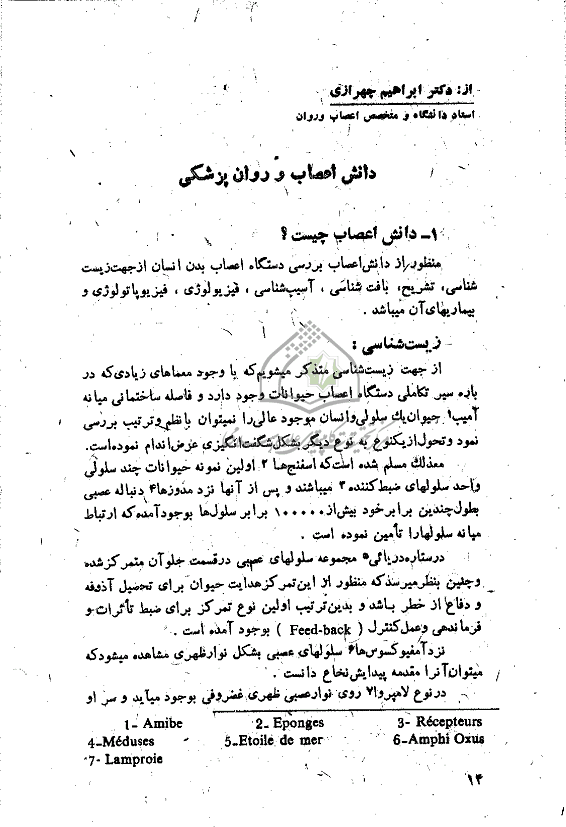 از: دکتر ابراهیم چهرازی
استاد دانشگاه و متخصص اعصاب وروان
دانش اعصاب و روان پزشکی
۱ـ دانش اعصاب چیست ؟
منظور از دانش‌اعصاب بررسی دستگاه اعصاب بدن انسان ازجهت‌زیست
شناسی، تشریح، بافت شناسی ، آسیب‌شناسی ، فیزیولوژی ، فیزیوپاتولوژی و
بیماریهای‌آن میباشد .
زیست‌شناسی :
از جهت زیست‌شناسی متذکر میشویم‌که با وجود معماهای زیادی‌که در
باره سیر تکاملی دستگاه اعصاب حیوانات وجود دارد و فاصله ساختمانی میانه
آمیب۱ حیوان‌یك سلولی‌وانسان موجود عالی‌را نمیتوان بانظم‌وترتیب بررسی
نمود وتحول‌ازیکنوع به نوع دیگر بشکل‌شگفت‌انگیزی عرض‌اندام نموده‌است.
معذلك مسلم شده است‌که اسفنج‌ها ۲ اولین نمونه حیوانات چند سلولی
واجد سلولهای ضبط‌کننده ۳ میباشند و پس از آنها نزد مدوزها۴ دنباله عصبی
بطول‌چندین برابرخود بیش‌از۱۰۰۰۰۰ برابر سلول‌ها بوجودآمده‌که ارتباط
میانه سلولهارا تأمین نموده است .
درستاره‌دریائی۵ مجموعه سلولهای عصبی درقسمت جلوآن متمرکزشده
وچنین بنظرمیرسدکه منظور از این‌تمرکزهدایت حیوان برای تحصیل آذوقه
و دفاع از خطر باشد و بدین‌ترتیب اولین نوع تمرکز برای ضبط تأثرات و
فرماندهی وعمل‌کنترل ( Feed-back ) بوجود آمده است .
نزدآمفیوکسوس‌ها۶ سلولهای عصبی بشکل نوارظهری مشاهده میشودکه
میتوان‌آنرا مقدمه پیدایش‌نخاع دانست .
درنوع لامپروا۷ روی نوارعصبی ظهری غضروفی بوجود میآید و سر او
1- Amibe 2- Eponges 3- Récepteurs
4-Méduses 5-Etoile de mer 6-Amphi Oxus
7- Lamproie
۱۴